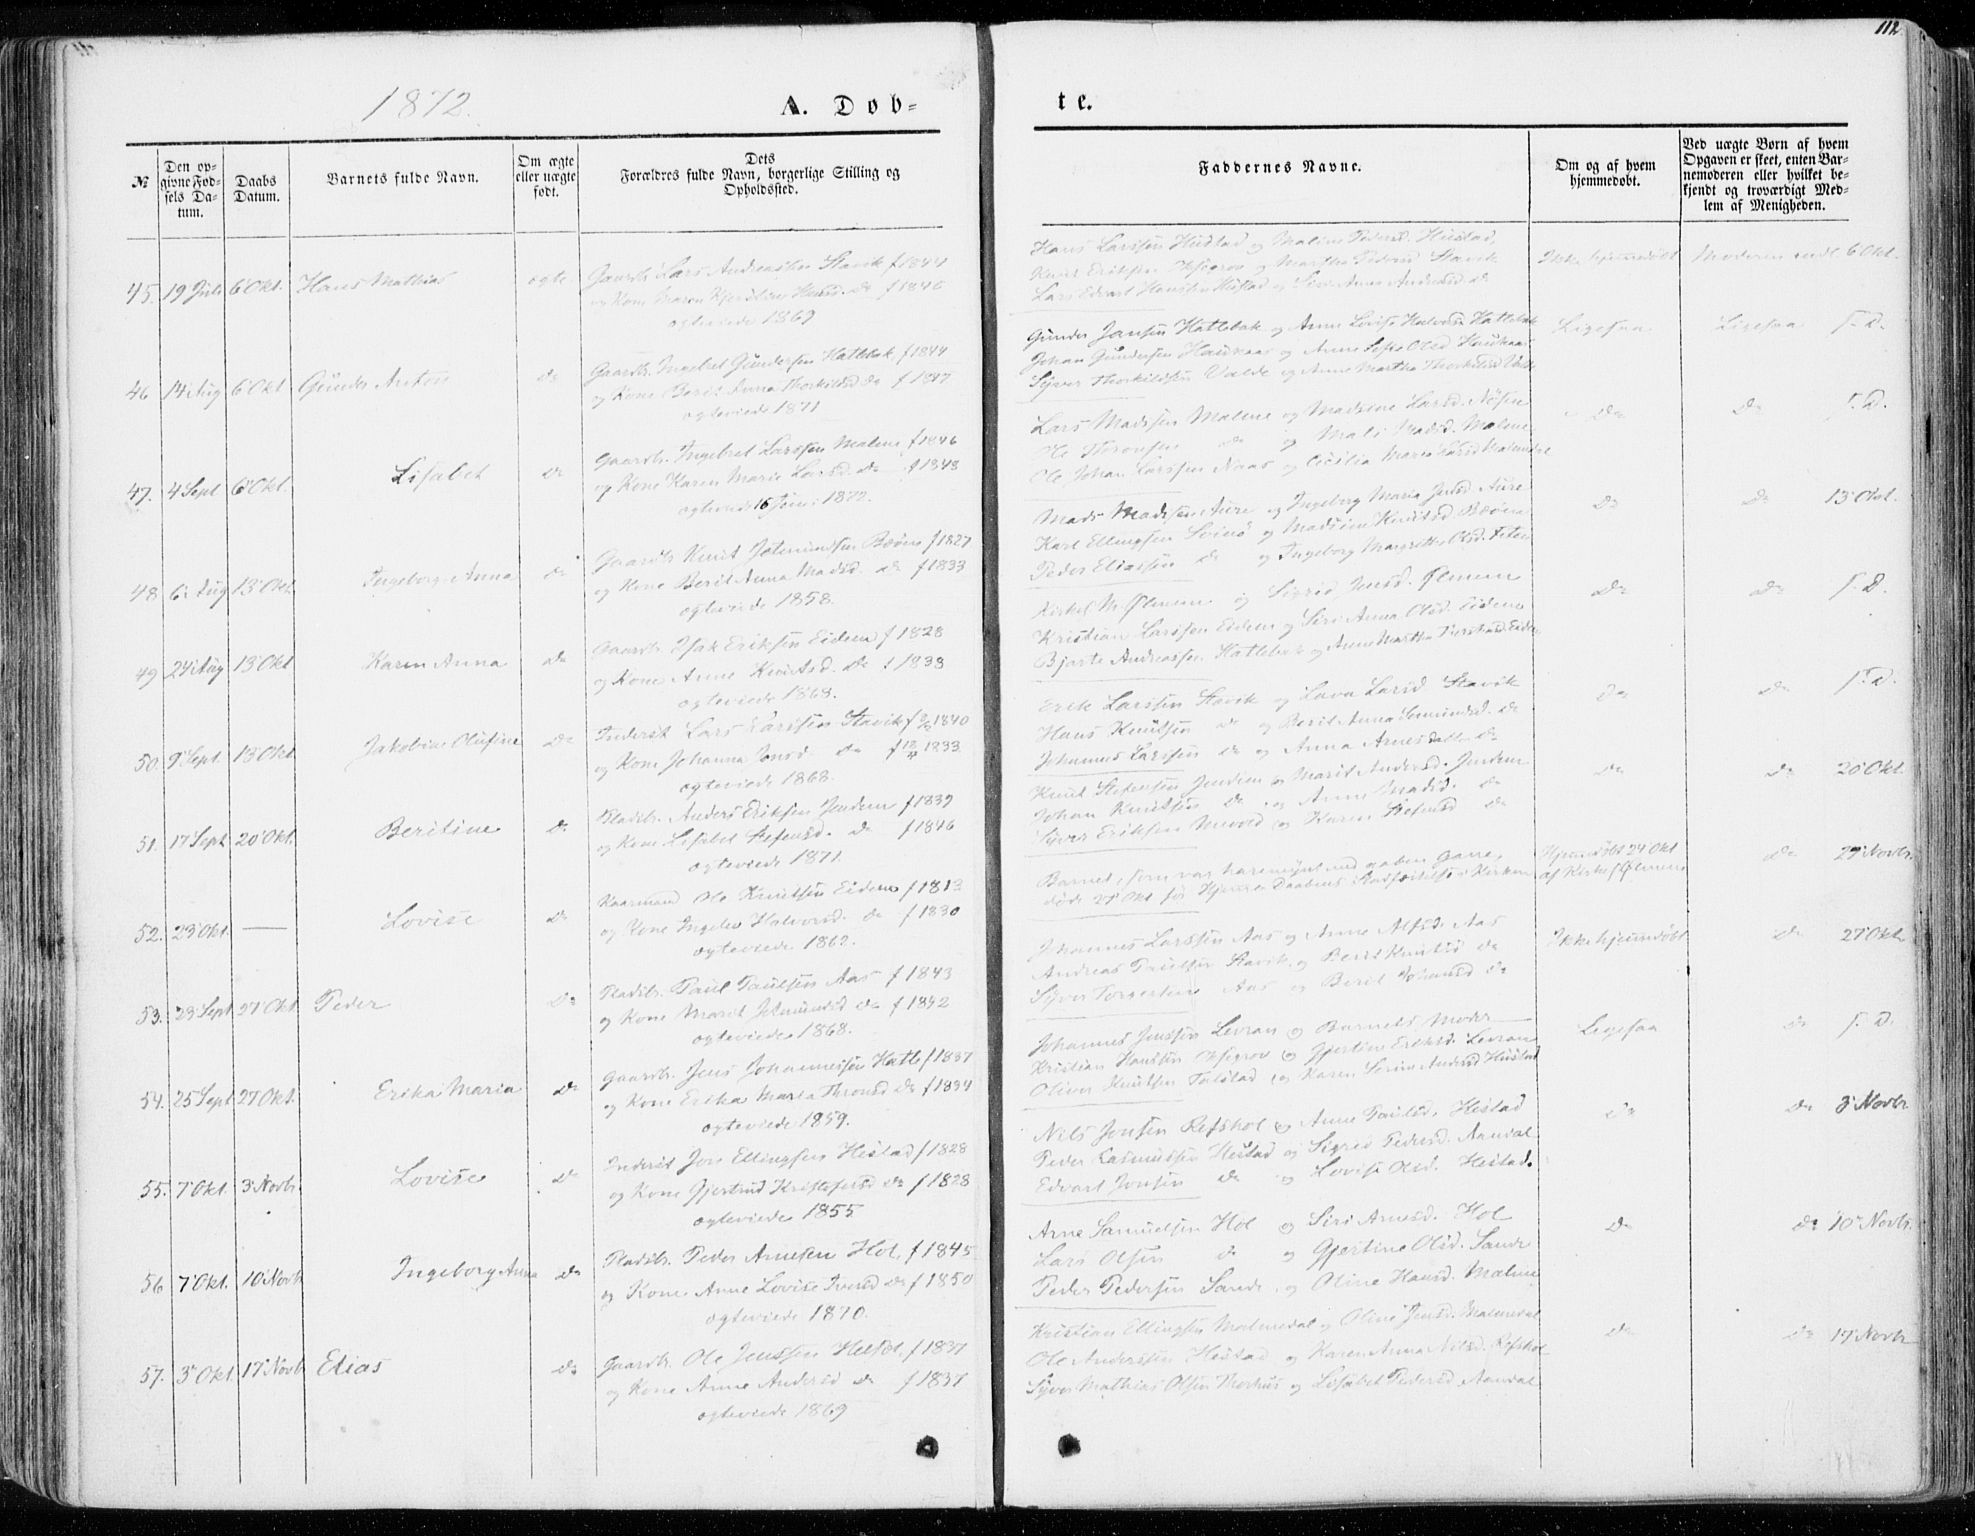 112
1872.
A. Døb-
te.
№
Den op-
givne Fød-
sels Da-
tum.
Daabs
Datum.
Barnets fulde Navn.
Om ægte
eller uægte
født.
Dets
Forældres fulde Navn, borgerlige Stilling og
Opholdssted.
Faddernes Navne.
Om og af hvem
hjemmedøbt.
Ved uægte Børn af hvem
Opgaven er skeet, enten Bar-
nemoderen eller hvilket be-
kjendt og troværdigt Med-
lem af Menigheden.
45. 19 Juli 6 Okt. Hans Mathias ægte
Gaardbr. Lars Andreassen Stavik f 1844
og Kone Maren
ægteviede 1869
Hans Larssen Hustad og Malene Pedersd. Hustad,
Knut Eriksen og Martha Stavik
Lars Edvart Hanssen Hustad og Siri Anna Andreasd. do
Ikke hjemmedøbt Moderen 6 Okt.
46 14 Aug 6 Okt Gunder Anton do
Gaardbr. Ingebret Gundersen Hatlebak f 1844
og Kone Berit Anna Thorkildsd do f 1847
ægteviede 1871
Gunder Jansen Hatlebak og Anne Lovise Halvorsd Hatlebak
Johan Gundersen Haukaas og Anne Olsd Haukaas
Syver Thorkildsen Valde og Anne Martha Thorkildsd Valde
Ligesaa Ligesaa S. D.
47. 4 Sept 6 Okt. Lisabet do
Gaardbr. Ingebret Larssen Malme f 1846
og Kone Karen Marie Larsd. do f 1848
ægteviede 16 Juni 1872.
Lars Madssen Malme og Madsine Larsd.
Ole do og Mali Madsd. Malme
Ole Johan Larssen Naas og Cecilia Maria Larsd Malmedal
do do S. D.
48 6 Aug 13 Okt. Ingeborg Anna do
Gaardbr. Knut Jetmundsen Bøvre f 1827
og Kone Berit Anna Madsd. do f 1833
ægteviede 1858.
Mads Madssen Aure og Ingeborg Maria Jensd Aure
Karl Ellingsen Svinø og Madsine Knutsd
Peder Eliassen do og Ingeborg Margrethe Olsd.
do do 13 Okt.
49 24 Aug 13 Okt Karen Anna do
Gaardbr. Isak Eriksen Eidem f 1828
og Kone Anne Knutsd. do f 1838
ægteviede 1868.
og Sigrid Jensd.
Kristian Larssen Eidem og Siri Anna Olsd. Eidem
Bjarte Andreassen Hatlebak og Anne Martha Eidem
do do S. D.
50. 9 Sept. 13 Okt Jakobine Olufine do
Inderst Lars Larssen Stavik f 1840
og Kone Johanna Jonsd do f 1833
ægteviede 1868.
Erik Larssen Stavik og Lava Larsd Stavik
Hans Knutsen do og Berit Anna do
Johannes Larssen do og Anna do
do do S. D.
51. 17 Sept 20 Okt. Beritine do
Pladsbr. Anders Eriksen Jendem f 1839
og Kone Lisabet Stefensd. do f 1846
ægteviede 1871.
Knut Stefensen Jendem og Marit Andersd. Jendem
Johan Knutsen do og Anne Madsd. do
Syver Eriksen og Karen Stefensd do
do do 20 Okt
52. 23 Okt. — Lovise do
Kaarmand Ole Knutsen Eidem f 1813
og Kone Halvorsd. do f 1830
ægteviede 1862.
Barnet, som var haremynt med aaben Gane,
døde Okt før Hjemme Daabens Stadfæstelse i Kirken
Hjemmedøbt 24 Okt
af
do 24 Novbr.
53. 23 Sept 27 Okt Peder do
Pladsbr. Paul Paulsen Aas f 1843
og Kone Marit Jetmundsd do f 1842
ægteviede 1868.
Johannes Larssen Aas og Anne Alfsd. Aas
Andreas Paulsen Stavik og Berit Knutsd do
Syver Aas og Berit Johansd do
Ikke hjemmedøbt do 27 Okt
54. 25 Sept 27 Okt. Erika Maria do
Gaardbr. Jens Johannessen Hatle f 1837
og Kone Erika Maria Thronsd do f 1834
ægteviede 1859.
Johannes Jenssen Levran og Barnets Moder
Kristian Hanssen og Gjertine Eriksd. Levran
Oliver Knutsen Talstad og Karen Serine Andersd Hustad
Ligesaa do S. D.
55. 7 Okt. 3 Novbr. Lovise do
Inderst Jon Ellingsen Hestad f 1828
og Kone Gjertrud Kristofersd do f 1828
ægteviede 1855
Nils Jonsen Refshol og Anne Paulsd. Hestad
Peder Rasmussen Hestad og Sigrid Pedersd. Aandal
Edvart Jonsen do og Lovise Olsd. Hestad.
do do 3 Novbr
56 7 Okt. 10 Novbr Ingeborg Anna do
Pladsbr. Peder Arnesen Hol. f 1845
og Kone Anne Lovise Iversd do f 1850
ægteviede 1870.
Arne Samuelsen Hol og Siri Arnesd. Hol
Lars Olsen do og Gjertine Olsd. Sande
Peder Pedersen Sande og Oline Hansd. Malme
do do 10 Novbr.
57. 3 Okt. 17 Novb Elias do
Gaardbr. Ole Jenssen f 1837
og Kone Anne Andersd do f 1837
ægteviede 1869
Kristian Ellingsen Malmedal og Oline Jensd. Malmedal
Ole Anderssen Hestad og Karen Anna Nilsd. Refshol
Syver Mathias Olsen og Lisabet Pedersd Aandal
do do 17 Novbr